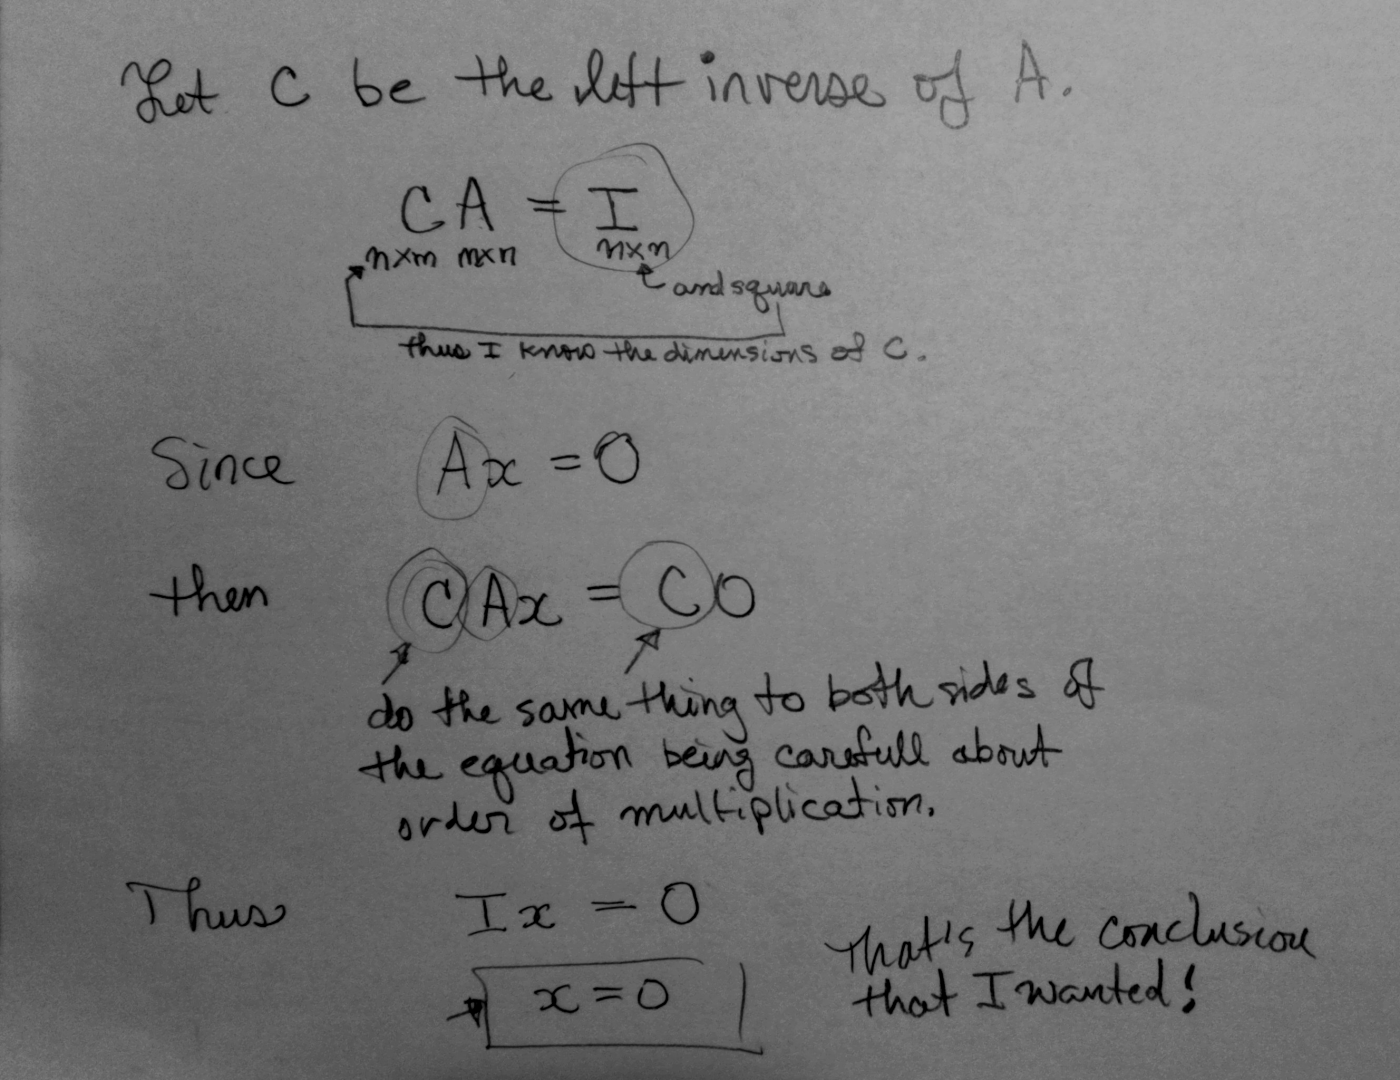 Let C be the left inverse of A.
CA = I
n×m m×n n×n
and square
thus I know the dimensions of C.
Since Ax = 0
then CAx = C0
do the same thing to both sides of
the equation being carefull about
order of multiplication.
Thus Ix = 0
x = 0
That's the conclusion
that I wanted!